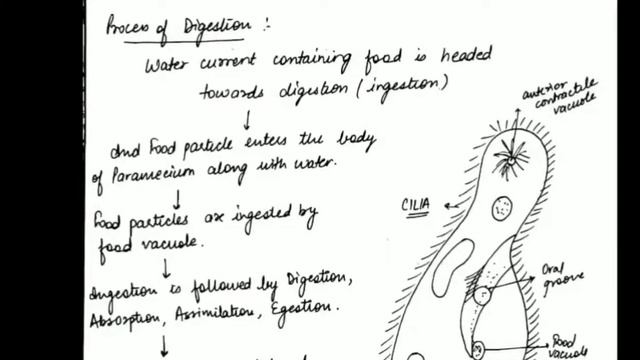 Process of Digestion :-
Water current containing food is headed
towards digestion (ingestion)
And Food particle enters the body
of Paramecium along with water.
Food particles are ingested by
food vacuole.
Ingestion is followed by Digestion,
Absorption, Assimilation, Egestion.
anterior
contractile
vacuole
CILIA
Oral
groove
Food
vacuole